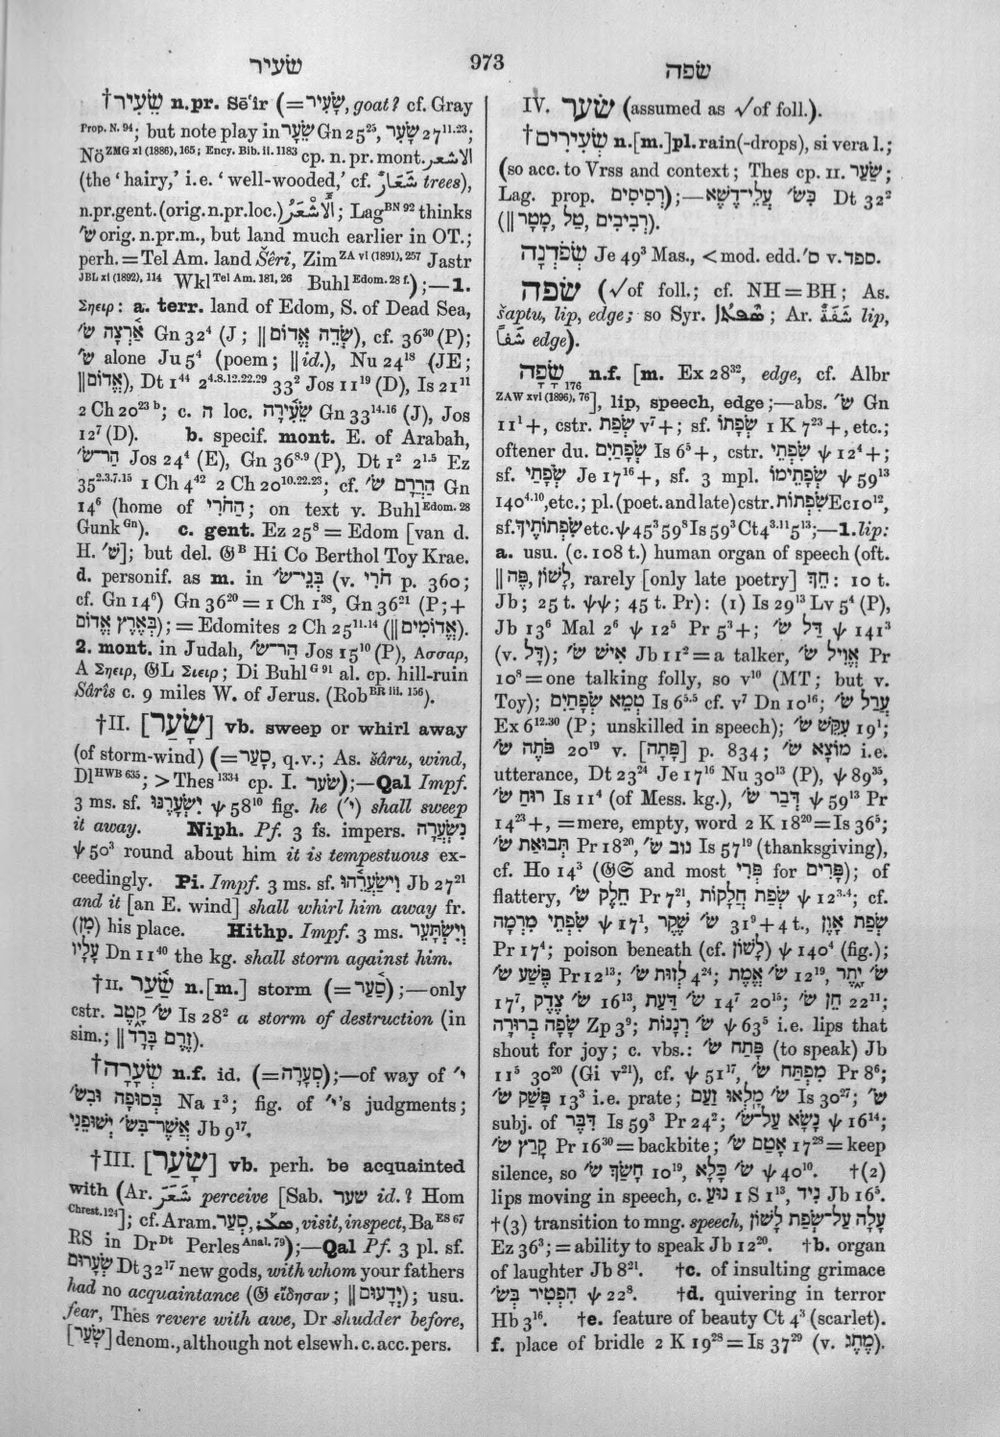 שׂעיר
973
שׂפה
†שֵׂעִיר n.pr. Sē‘ir (=שָׂעִיר, goat? cf. Gray
Prop. N. 94; but note play in שֵׂעָר Gn 25²⁵, שָׂעִר 27¹¹·²³;
Nö ZMG xl (1886), 165; Ency. Bib. ii. 1183 cp. n. pr. mont. الاشعر
(the ‘hairy,’ i.e. ‘well-wooded,’ cf. شَعَارٌ trees),
n.pr.gent. (orig. n.pr.loc.) الأَشْعَرُ; Lag BN 92 thinks
שׂ׳ orig. n.pr.m., but land much earlier in OT.;
perh. = Tel Am. land Šêri, Zim ZA vi (1891), 257 Jastr
JBL xi (1892), 114 Wkl Tel Am. 181, 26 Buhl Edom. 28 f.);—1.
Σηειρ: a. terr. land of Edom, S. of Dead Sea,
אַ֫רְצָה שׂ׳ Gn 32⁴ (J; ‖ שְׂדֵה אֱדוֹם), cf. 36³⁰ (P);
שׂ׳ alone Ju 5⁴ (poem; ‖ id.), Nu 24¹⁸ (JE;
‖ אֱדוֹם), Dt 1⁴⁴ 2⁴·⁸·¹²·²²·²⁹ 33² Jos 11¹⁹ (D), Is 21¹¹
2 Ch 20²³ ᵇ; c. ה loc. שֵׂעִ֫ירָה Gn 33¹⁴·¹⁶ (J), Jos
12⁷ (D). b. specif. mont. E. of Arabah,
הַר־שׂ׳ Jos 24⁴ (E), Gn 36⁸·⁹ (P), Dt 1² 2¹·⁵ Ez
35²·³·⁷·¹⁵ 1 Ch 4⁴² 2 Ch 20¹⁰·²²·²³; cf. הַרֲרָם שׂ׳ Gn
14⁶ (home of הַחֹרִי; on text v. Buhl Edom. 28
Gunk Gn). c. gent. Ez 25⁸ = Edom [van d.
H. שׁ׳]; but del. 𝔊ᴮ Hi Co Berthol Toy Krae.
d. personif. as m. in בְּנֵי־שׂ׳ (v. חֹרִי p. 360;
cf. Gn 14⁶) Gn 36²⁰ = 1 Ch 1³⁸, Gn 36²¹ (P; +
בְּאֶרֶץ אֱדוֹם); = Edomites 2 Ch 25¹¹·¹⁴ (‖ אֲדוֹמִים).
2. mont. in Judah, הַר־שׂ׳ Jos 15¹⁰ (P), Ασσαρ,
A Σηειρ, 𝔊L Σιειρ; Di Buhl G 91 al. cp. hill-ruin
Sârîs c. 9 miles W. of Jerus. (Rob BR iii. 156).
†II. [שָׂעַר] vb. sweep or whirl away
(of storm-wind) (=סָעַר, q.v.; As. šâru, wind,
Dl HWB 635; > Thes 1334 cp. I. שׂער);—Qal Impf.
3 ms. sf. יִשְׂעָרֶנּוּ ψ 58¹⁰ fig. he (י׳) shall sweep
it away. Niph. Pf. 3 fs. impers. נִשְׂעֲרָה
ψ 50³ round about him it is tempestuous ex-
ceedingly. Pi. Impf. 3 ms. sf. וִישָׂעֲרֵ֫הוּ Jb 27²¹
and it [an E. wind] shall whirl him away fr.
(מִן) his place. Hithp. Impf. 3 ms. וְיִשְׂתָּעֵר
עָלָיו Dn 11⁴⁰ the kg. shall storm against him.
†II. שַׂ֫עַר n.[m.] storm (=סַ֫עַר);—only
cstr. שׂ׳ קָטֶב Is 28² a storm of destruction (in
sim.; ‖ זֶרֶם בָּרָד).
†שְׂעָרָה n.f. id. (=סְעָרָה);—of way of י׳
בְּסוּפָה וּבִשׂ׳ Na 1³; fig. of י׳'s judgments;
אֲשֶׁר־בִּשׂ׳ יְשׁוּפֵנִי Jb 9¹⁷.
†III. [שָׂעַר] vb. perh. be acquainted
with (Ar. شَعَرَ perceive [Sab. שער id.? Hom
Chrest. 124]; cf. Aram. סְעַר, ܣܥܰܪ, visit, inspect, Ba ES 67
RS in Dr Dt Perles Anal. 79);—Qal Pf. 3 pl. sf.
שְׂעָרוּם Dt 32¹⁷ new gods, with whom your fathers
had no acquaintance (𝔊 εἴδησαν; ‖ יְדָעוּם); usu.
fear, Thes revere with awe, Dr shudder before,
[שָׂעַר] denom., although not elsewh. c. acc. pers.
IV. שׂער (assumed as √ of foll.).
†שְׂעִירִים n.[m.]pl. rain(-drops), si vera l.;
(so acc. to Vrss and context; Thes cp. II. שַׂעַר;
Lag. prop. רְסִיסִים);—כִּשׂ׳ עֲלֵי־דֶשֶׁא Dt 32²
(‖ רְבִיבִים, טַל, מָטָר).
שְׂפֹדְנָה Je 49³ Mas., < mod. edd. ס׳ v. ספד.
שׂפה (√ of foll.; cf. NH = BH; As.
šaptu, lip, edge; so Syr. ܣܦܬܐ; Ar. شَفَةٌ lip,
شَفًا edge).
שָׂפָה 176 n.f. [m. Ex 28³², edge, cf. Albr
ZAW xvi (1896), 76], lip, speech, edge;—abs. שׂ׳ Gn
11¹+, cstr. שְׂפַת v⁷+; sf. שְׂפָתוֹ 1 K 7²³+, etc.;
oftener du. שְׂפָתַיִם Is 6⁵+, cstr. שִׂפְתֵי ψ 12⁴+;
sf. שְׂפָתַי Je 17¹⁶+, sf. 3 mpl. שְׂפָתֵימוֹ ψ 59¹³
140⁴·¹⁰, etc.; pl. (poet. and late) cstr. שִׂפְתוֹת Ec 10¹²,
sf. שִׂפְתוֹתֶיךָ etc. ψ 45³ 59⁸ Is 59³ Ct 4³·¹¹ 5¹³;—1. lip:
a. usu. (c. 108 t.) human organ of speech (oft.
‖ לָשׁוֹן, פֶּה, rarely [only late poetry] חֵךְ: 10 t.
Jb; 25 t. ψψ; 45 t. Pr): (1) Is 29¹³ Lv 5⁴ (P),
Jb 13⁶ Mal 2⁶ ψ 12⁵ Pr 5³+; דַּל שׂ׳ ψ 141³
(v. דַּל); אִישׁ שׂ׳ Jb 11² = a talker, אֱוִיל שׂ׳ Pr
10⁸ = one talking folly, so v¹⁰ (MT; but v.
Toy); טְמֵא שְׂפָתַיִם Is 6⁵·⁵ cf. v⁷ Dn 10¹⁶; עֲרַל שׂ׳
Ex 6¹²·³⁰ (P; unskilled in speech); עִקֵּשׁ שׂ׳ 19¹;
פֹּתֶה שׂ׳ 20¹⁹ v. [פָּתָה] p. 834; מוֹצָא שׂ׳ i.e.
utterance, Dt 23²⁴ Je 17¹⁶ Nu 30¹³ (P), ψ 89³⁵,
רוּחַ שׂ׳ Is 11⁴ (of Mess. kg.), דְּבַר שׂ׳ ψ 59¹³ Pr
14²³+, = mere, empty, word 2 K 18²⁰ = Is 36⁵;
תְּבוּאַת שׂ׳ Pr 18²⁰, נוּב שׂ׳ Is 57¹⁹ (thanksgiving),
cf. Ho 14³ (𝔊𝔖 and most פְּרִי for פָּרִים); of
flattery, חֵלֶק שׂ׳ Pr 7²¹, שְׂפַת חֲלָקוֹת ψ 12³·⁴; cf.
שִׂפְתֵי מִרְמָה ψ 17¹, שׂ׳ שֶׁקֶר 31¹⁹ + 4 t., שְׂפַת אָוֶן
Pr 17⁴; poison beneath (cf. לָשׁוֹן) ψ 140⁴ (fig.);
פֶּשַׁע שׂ׳ Pr 12¹³; לְזוּת שׂ׳ 4²⁴; שׂ׳ אֱמֶת 12¹⁹, שׂ׳ יֶתֶר
17⁷, שׂ׳ צֶדֶק 16¹³, שׂ׳ דַּעַת 14⁷ 20¹⁵; חֵן שׂ׳ 22¹¹;
שָׂפָה בְרוּרָה Zp 3⁹; שׂ׳ רְנָנוֹת ψ 63⁵ i.e. lips that
shout for joy; c. vbs.: פָּתַח שׂ׳ (to speak) Jb
11⁵ 30²⁰ (Gi v²¹), cf. ψ 51¹⁷, מִפְתַּח שׂ׳ Pr 8⁶;
פָּשַׂק שׂ׳ 13³ i.e. prate; שׂ׳ מָלְאוּ זַעַם Is 30²⁷; שׂ׳
subj. of דִּבֶּר Is 59³ Pr 24²; נָשָׂא עַל־שׂ׳ ψ 16¹⁴;
קָרַץ שׂ׳ Pr 16³⁰ = backbite; אָטַם שׂ׳ 17²⁸ = keep
silence, so חָשַׂךְ שׂ׳ 10¹⁹, כָּלָא שׂ׳ ψ 40¹⁰. †(2)
lips moving in speech, c. נוּעַ 1 S 1¹³, נִיד Jb 16⁵.
†(3) transition to mng. speech, עָלָה עַל־שְׂפַת לָשׁוֹן
Ez 36³; = ability to speak Jb 12²⁰. †b. organ
of laughter Jb 8²¹. †c. of insulting grimace
הִפְטִיר בְּשׂ׳ ψ 22⁸. †d. quivering in terror
Hb 3¹⁶. †e. feature of beauty Ct 4³ (scarlet).
f. place of bridle 2 K 19²⁸ = Is 37²⁹ (v. מֶתֶג).